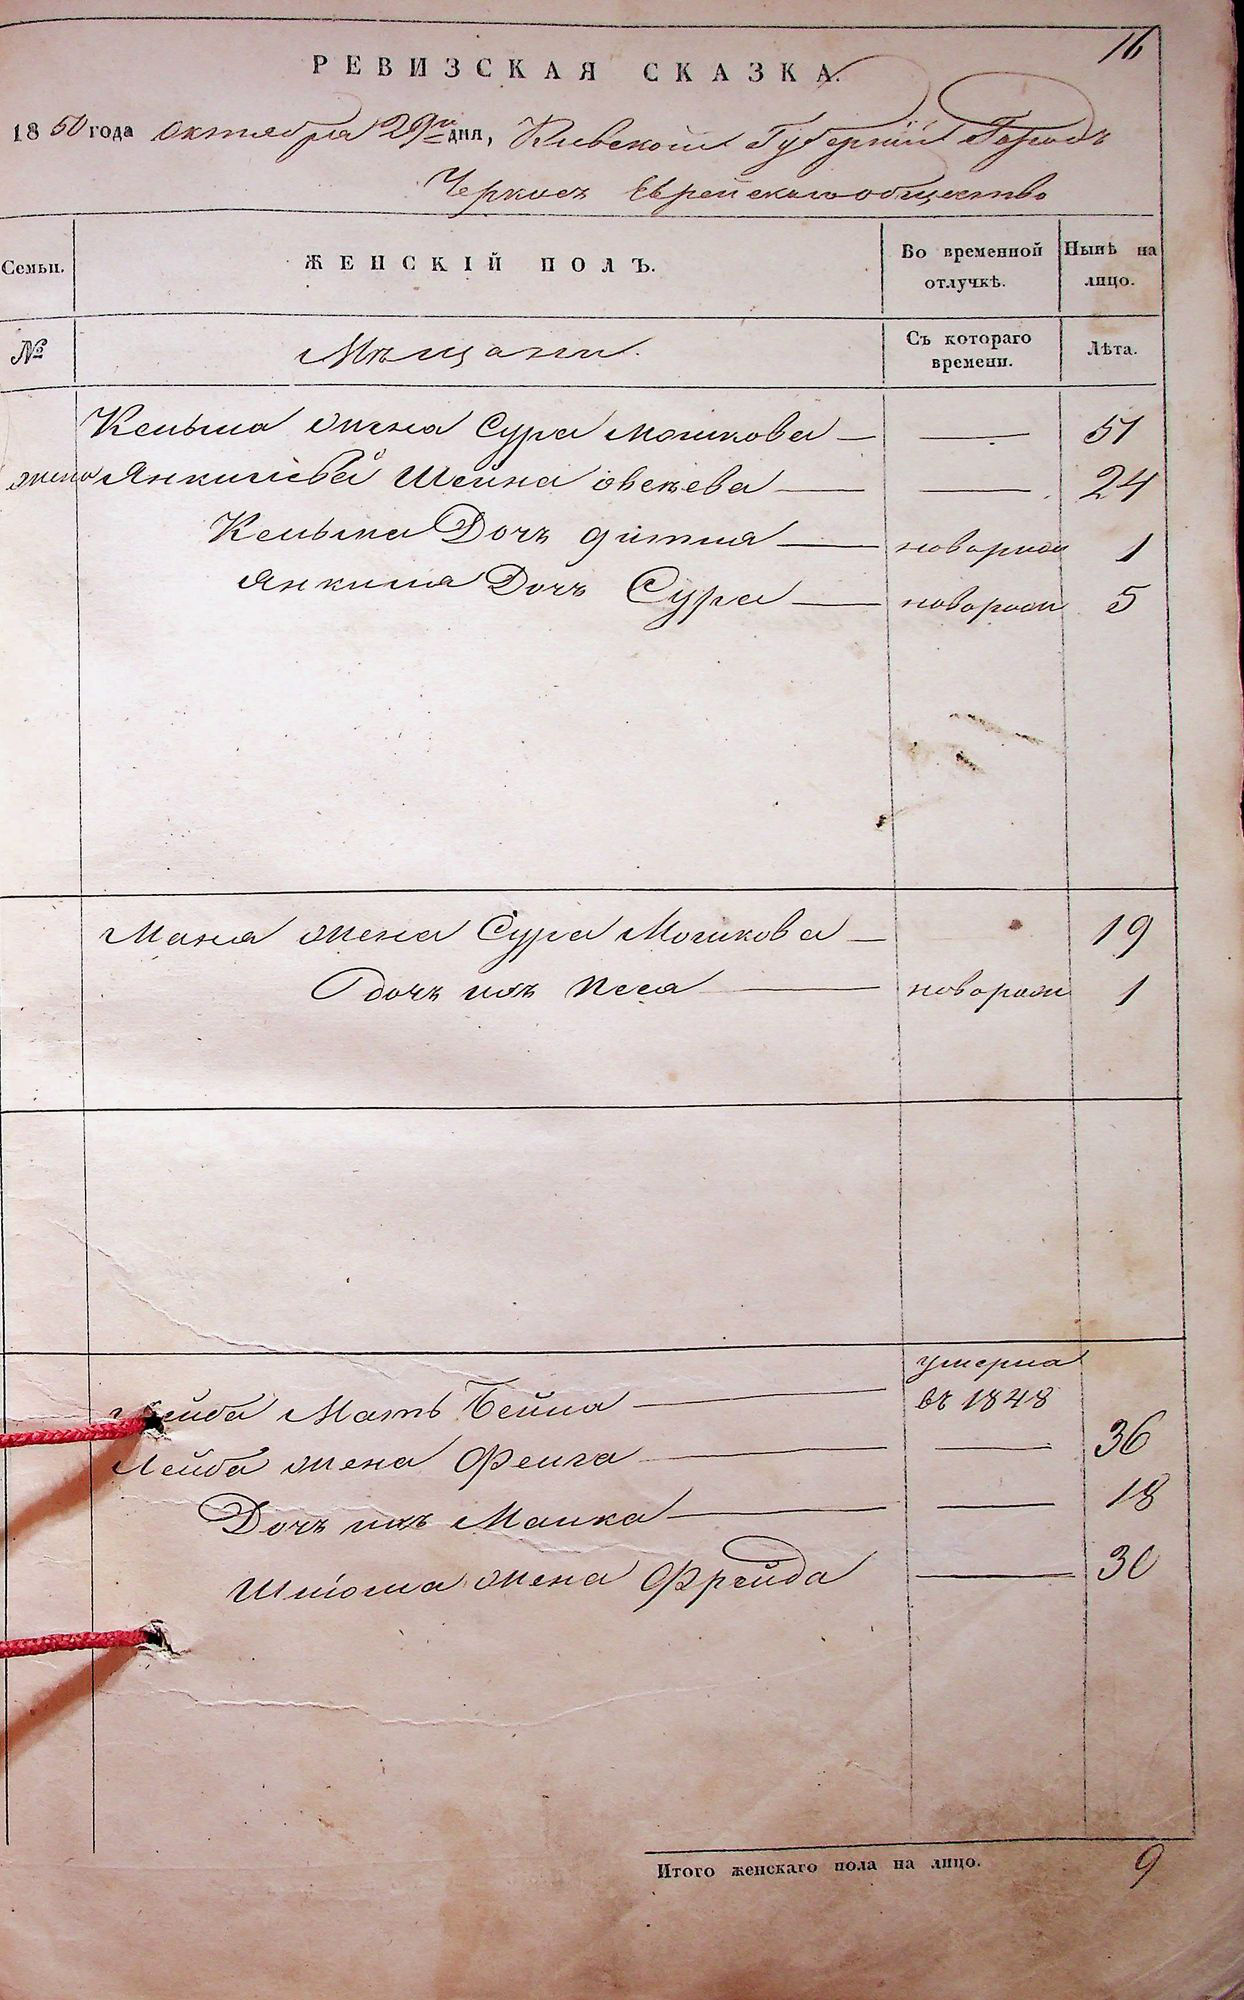 16
РЕВИЗСКАЯ СКАЗКА.
1850 года октября 29го дня, Киевской Губернии Городъ
Черкасъ Еврейскаго общество
Семьи. ЖЕНСКІЙ ПОЛЪ. Во временной отлучкѣ. Нынѣ на лицо.
№ Мѣщани. Съ котораго времени. Лѣта.
Кельмы жена Сура Мошкова — — 51
жена Янкилева Шейна — — 24
Кельма Дочъ — новорож 1
Янкила Дочъ Сура — новорож 5
жена Сура Мошкова — 19
дочъ ихъ Песа — новорож 1
Лейба Мать Бейла — умерла въ 1848
Лейба жена Фейга — — 36
Дочъ ихъ Малка — — 18
жена Фрейда — 30
Итого женскаго пола на лицо. 9